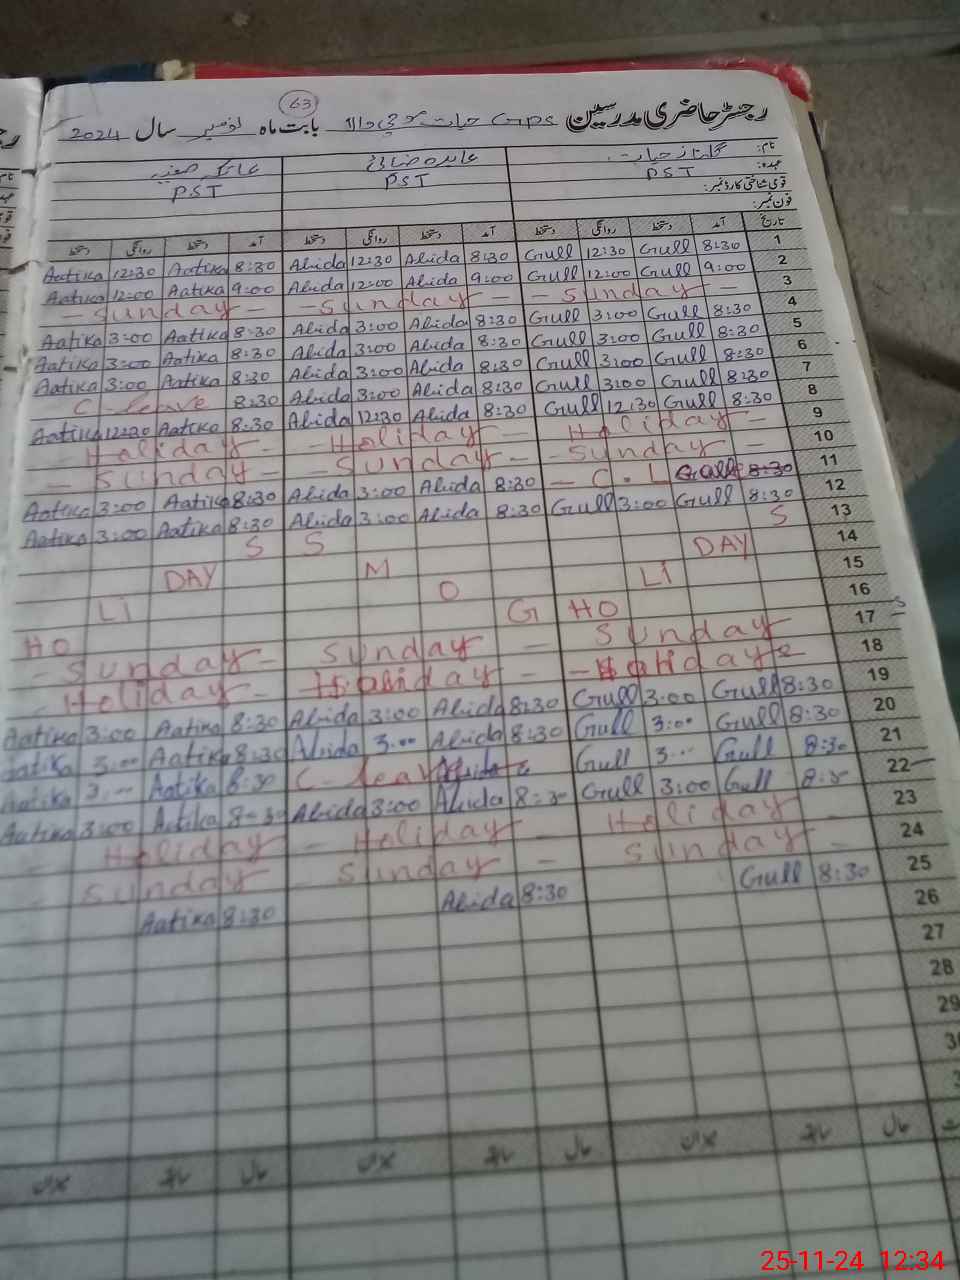 63
رجسٹر حاضری مدرسین GPS حیات موچی والا بابت ماہ نومبر سال 2024
نام: گلناز حیات عابدہ عاتکہ صفیہ
عہدہ: PST PST PST
قومی شناختی کارڈ نمبر:
فون نمبر:
تاریخ آمد دستخط روانگی دستخط آمد دستخط روانگی دستخط آمد دستخط روانگی دستخط
Aatika 12:30 Aatika 8:30 Alida 12:30 Alida 8:30 Gull 12:30 Gull 8:30 1
Aatika 12:00 Aatika 9:00 Alida 12:00 Alida 9:00 Gull 12:00 Gull 9:00 2
- Sunday - - Sunday - - Sunday - 3
Aatika 3:00 Aatika 8:30 Alida 3:00 Alida 8:30 Gull 3:00 Gull 8:30 4
Aatika 3:00 Aatika 8:30 Alida 3:00 Alida 8:30 Gull 3:00 Gull 8:30 5
Aatika 3:00 Aatika 8:30 Alida 3:00 Alida 8:30 Gull 3:00 Gull 8:30 6
C-leave 8:30 Alida 3:00 Alida 8:30 Gull 3:00 Gull 8:30 7
Aatika 12:30 Aatika 8:30 Alida 12:30 Alida 8:30 Gull 12:30 Gull 8:30 8
Holiday - - Holiday - Holiday - 9
- Sunday - - Sunday - - Sunday - 10
Aatika 3:00 Aatika 8:30 Alida 3:00 Alida 8:30 - C.L Gull 8:30 11
Aatika 3:00 Aatika 8:30 Alida 3:00 Alida 8:30 Gull 3:00 Gull 8:30 12
S S S 13
DAY M DAY 14
Li O Li 15
HO G HO 16
- Sunday - Sunday - Sunday 17
- Holiday - Holiday - - Holiday 18
Aatika 3:00 Aatika 8:30 Alida 3:00 Alida 8:30 Gull 3:00 Gull 8:30 19
Aatika 3:00 Aatika 8:30 Alida 3:00 Alida 8:30 Gull 3:00 Gull 8:30 20
Aatika 3:00 Aatika 8:30 C-leave Gull 3:00 Gull 8:30 21
Aatika 3:00 Aatika 8:30 Alida 3:00 Alida 8:30 Gull 3:00 Gull 8:30 22
- Holiday - Holiday - Holiday 23
- Sunday - Sunday - Sunday - 24
Aatika 8:30 Alida 8:30 Gull 8:30 25
26
27
28
29
25-11-24 12:34